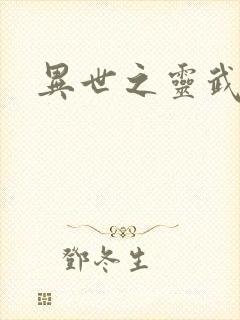 異世之靈武
鄧冬生